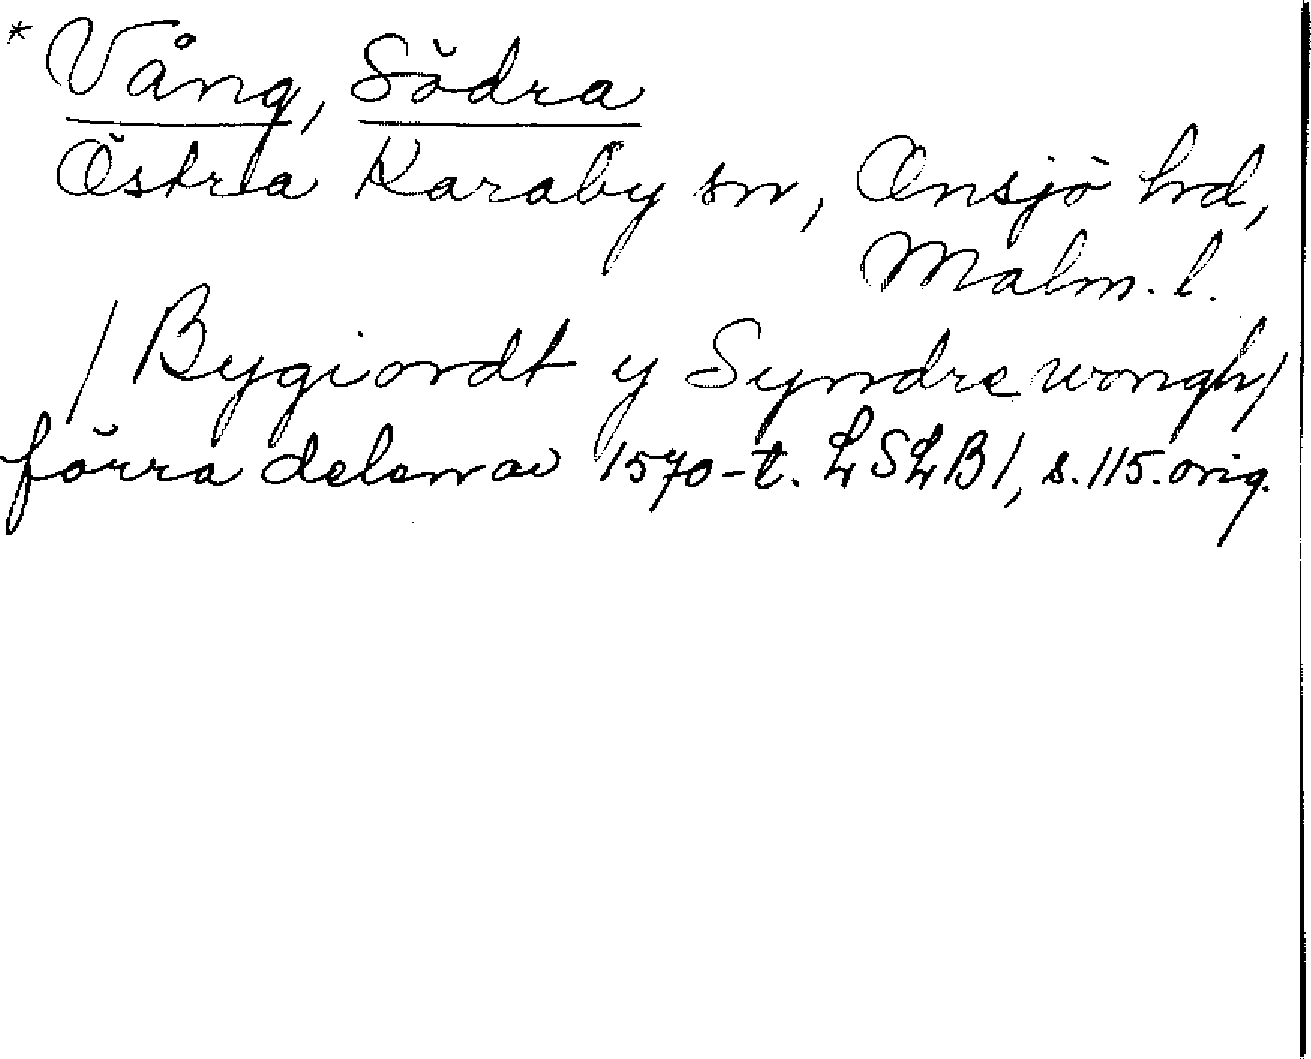 * Vång, Södra
Östra Karaby sn, Onsjö hd,
Malm. l.
/ Bygiordt y Syndre wongh /
förra delen av 1570-t. LSLB 1, s. 115. orig.